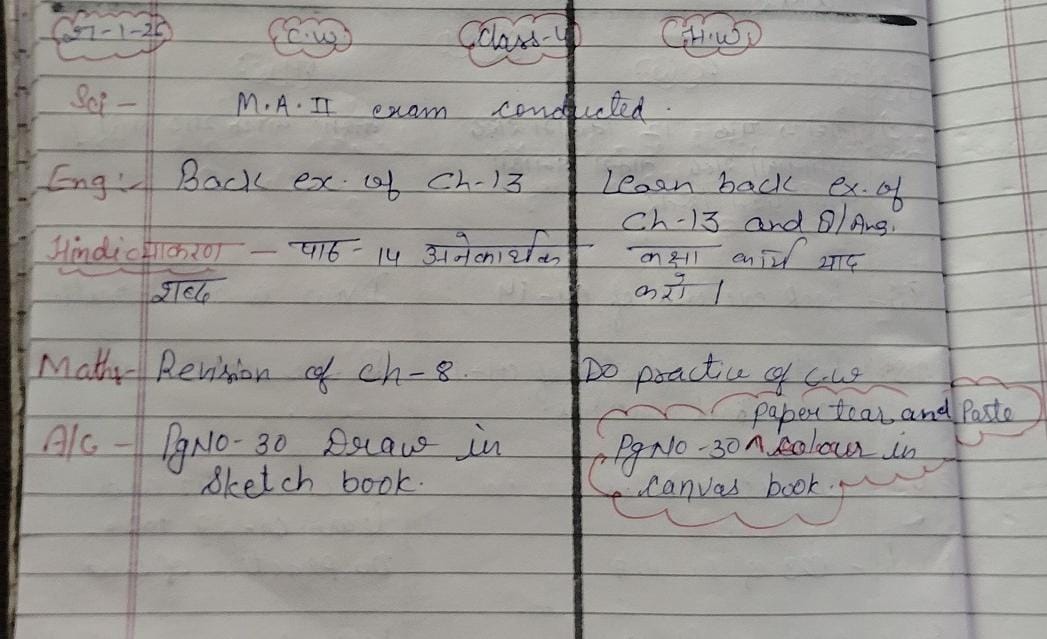 27-1-26 C.W Class-4 H.W.
Sci - M.A.II exam conducted.
Eng:- Back ex. of Ch-13 Learn back ex. of
Ch-13 and Q/Ans.
Hindi व्याकरण - पाठ - 14 अनेकार्थक कक्षा कार्य याद
शब्द करो ।
Maths- Revision of Ch-8. Do practice of C.W
paper tear and Paste
A/C - Pg No-30 Draw in Pg No-30 ^ colour in
Sketch book. Canvas book.